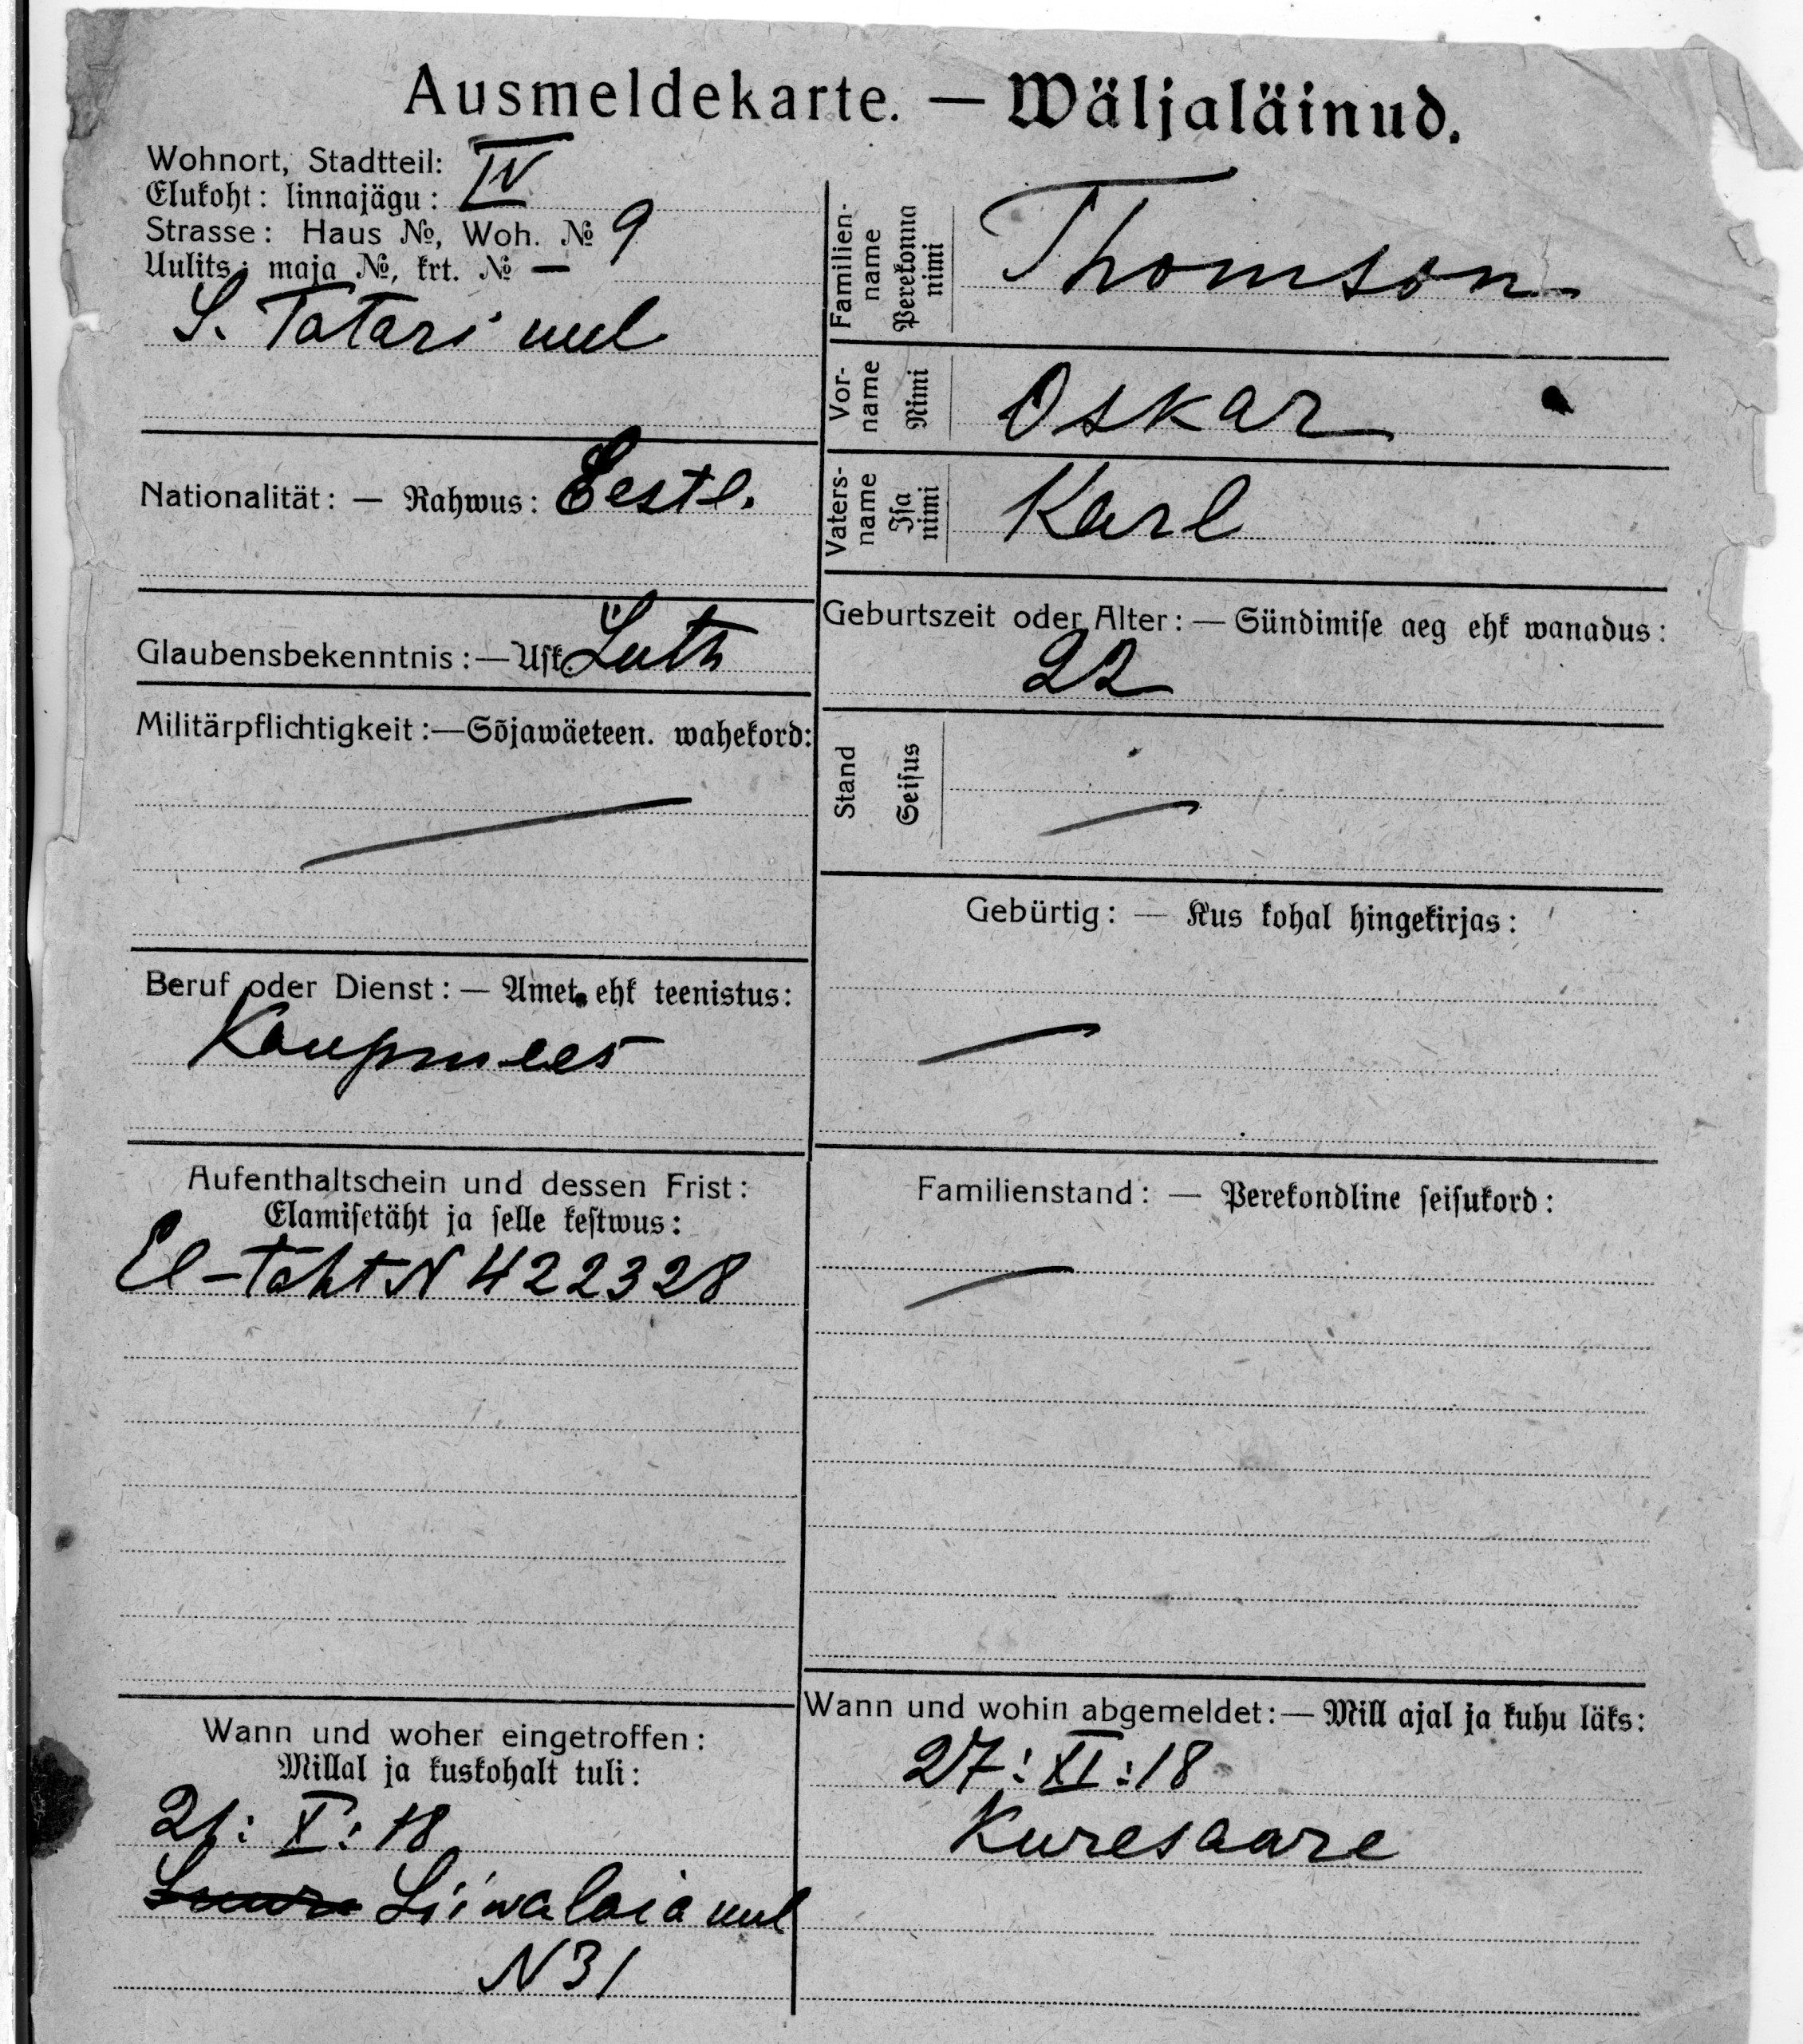 Ausmeldekarte. — Wäljaläinud.
Wohnort, Stadtteil:
Elukoht: linnajägu: IV
Strasse: Haus №, Woh. № 9
Uulits: maja №, krt. № —
S. Tatari uul
Nationalität: — Rahwus: Eestl.
Glaubensbekenntnis: — Usk: Luth
Militärpflichtigkeit: — Sõjawäeteen. wahekord:
—
Beruf oder Dienst: — Amet ehk teenistus:
Kaupmees
Aufenthaltschein und dessen Frist:
Elamisetäht ja selle kestwus:
El-täht N 422328
Wann und woher eingetroffen:
Millal ja kuskohalt tuli:
21: X: 18
Liiwalaia uul
N 31
Familien-
name
Perekonna
nimi
Thomson
Vor-
name
Nimi
Oskar
Vaters-
name
Isa
nimi
Karl
Geburtszeit oder Alter: — Sündimise aeg ehk wanadus:
22
Stand
Seisus
—
Gebürtig: — Kus kohal hingekirjas:
—
Familienstand: — Perekondline seisukord:
—
Wann und wohin abgemeldet: — Mill ajal ja kuhu läks:
27: XI: 18
Kuresaare